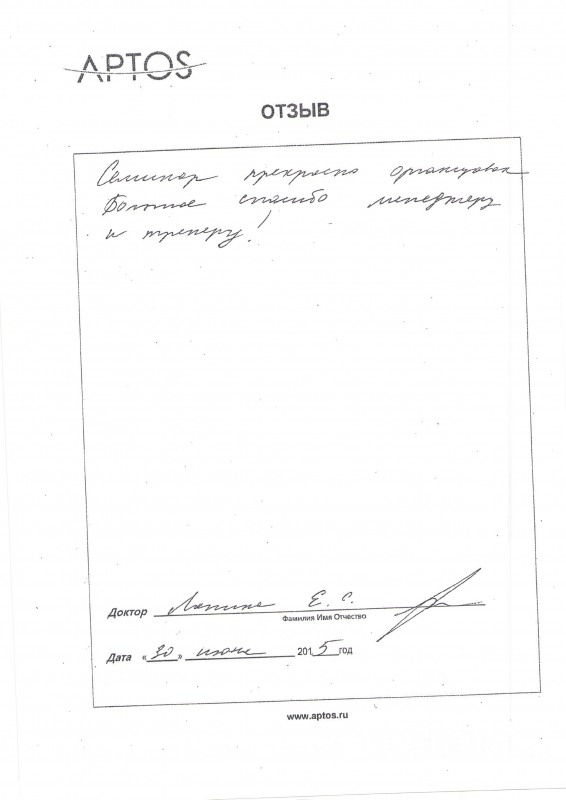 APTOS
ОТЗЫВ
Семинар прекрасно организован
Большое спасибо менеджеру
и тренеру!
Доктор Лапина Е. С.
Фамилия Имя Отчество
Дата «30» июня 2015 год
www.aptos.ru